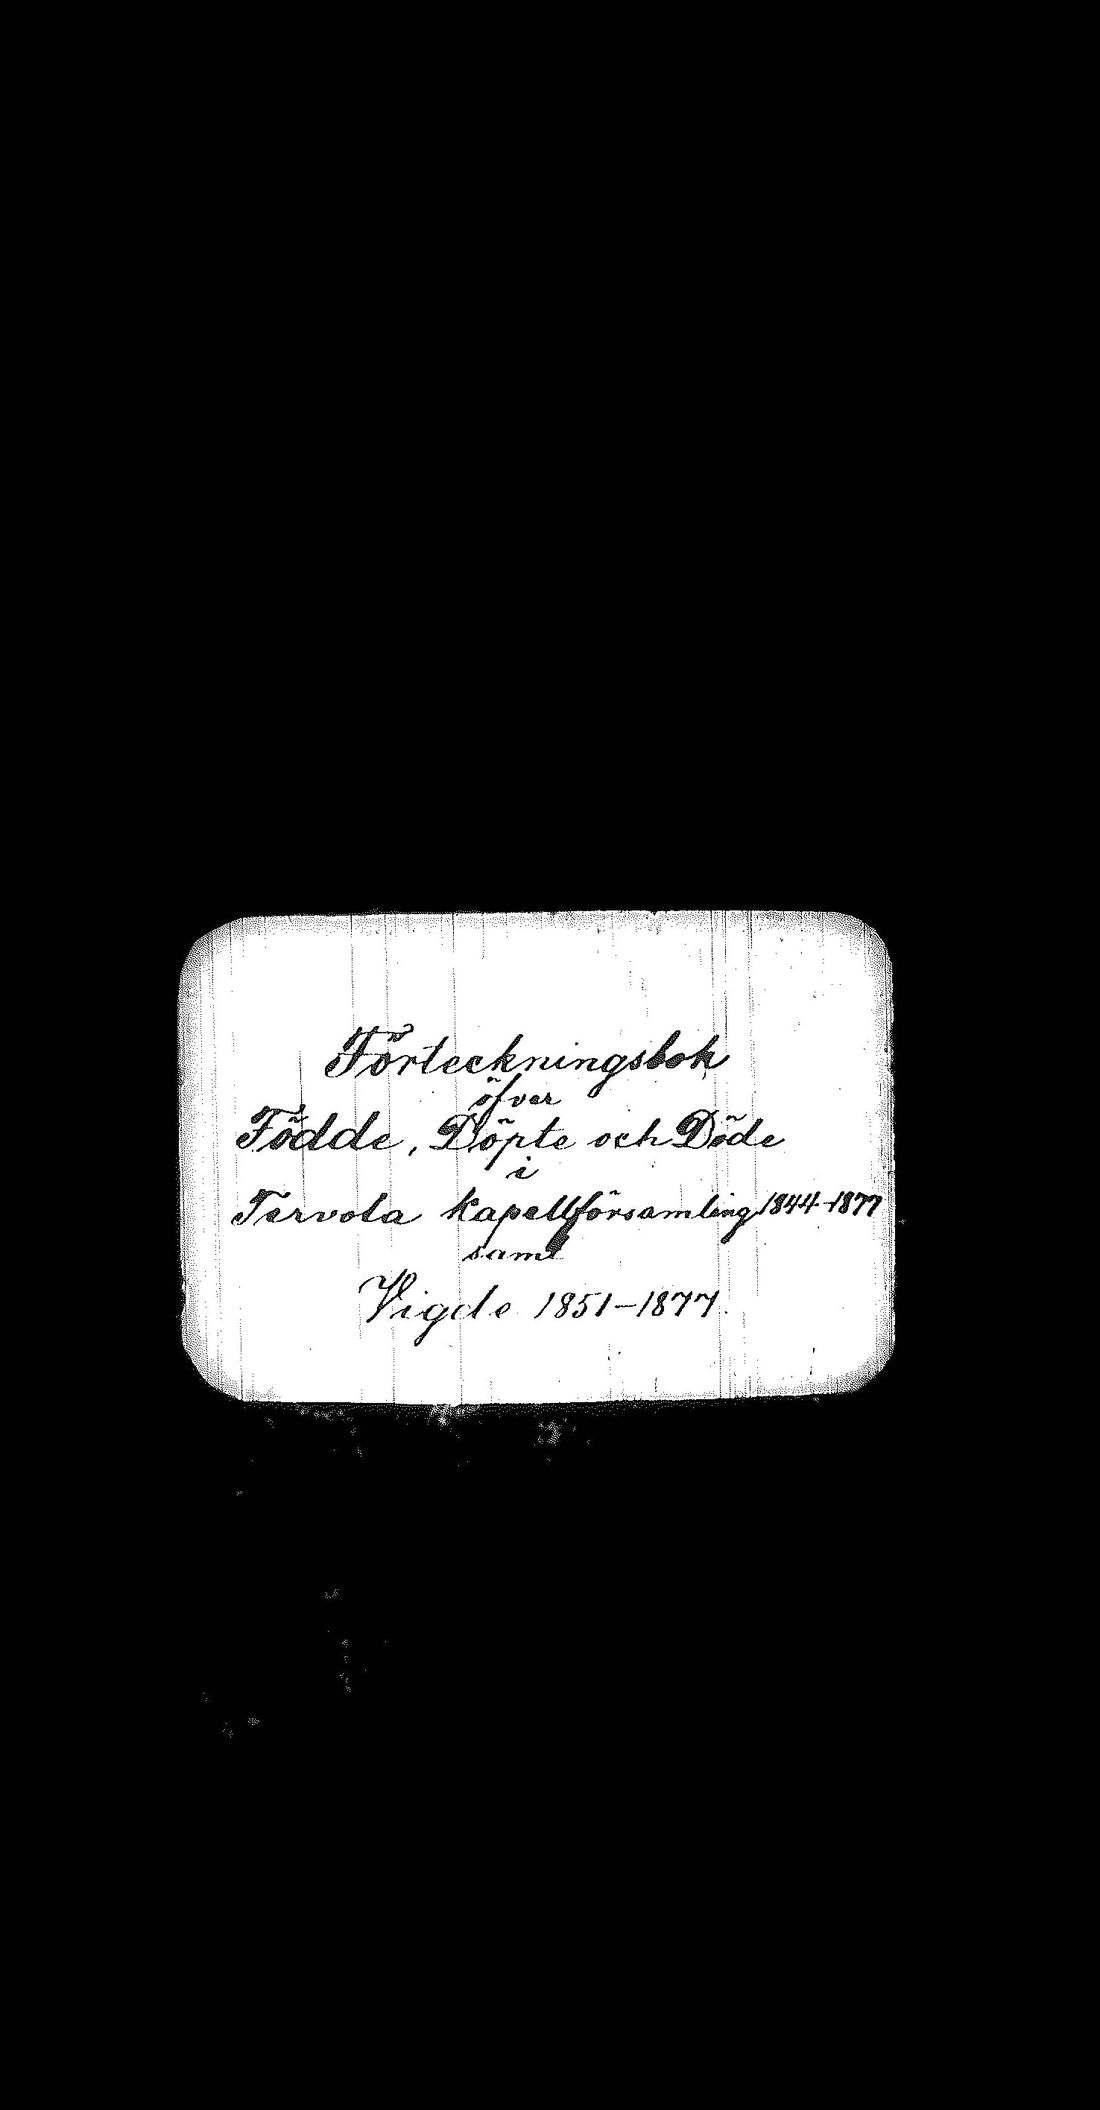 Förteckningsbok
öfver
Födde, Döpte och Döde
i
Tervola kapellförsamling 1844-1877
samt
Vigde 1851-1877.